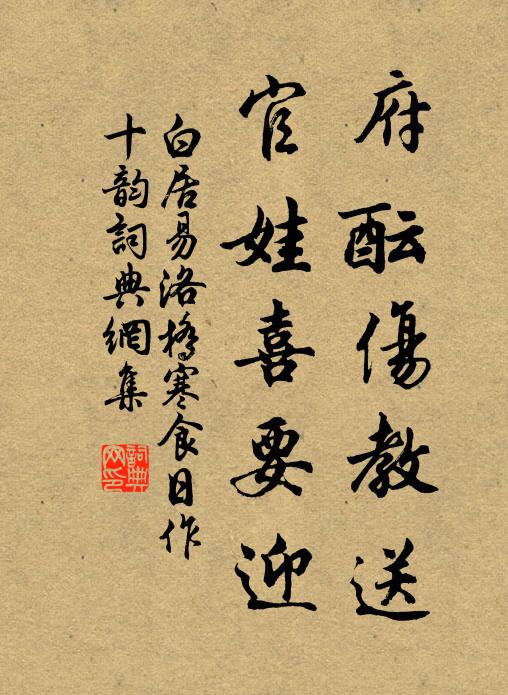 府酝傷教送
官娃喜要迎
白居易洛橋寒食日作
十韵詞典網集
詞典
网印